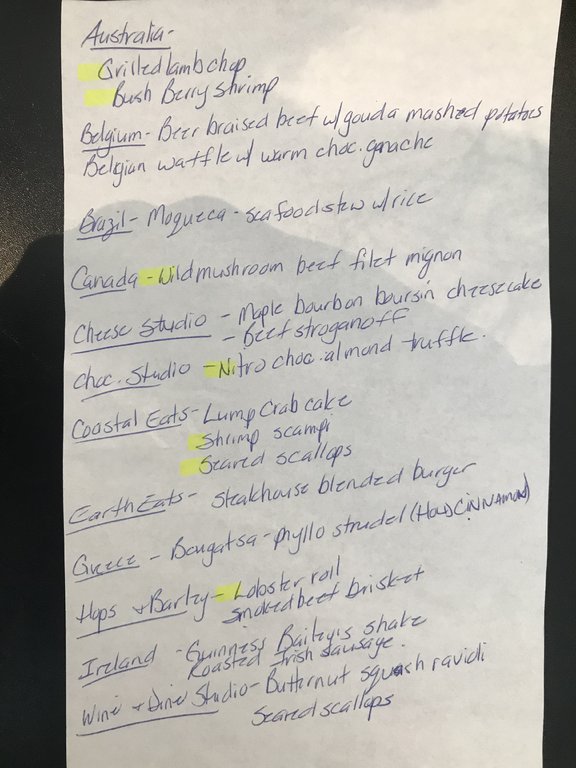 Australia-
Grilled lamb chop
Bush Berry Shrimp
Belgium- Beer braised beef w/ gouda mashed potatoes
Belgian waffle w/ warm choc. ganache
Brazil- Moqueca - seafood stew w/ rice
Canada - Wild mushroom beef filet mignon
Cheese Studio - Maple bourbon boursin cheesecake
- Beef stroganoff
Choc. Studio - Nitro choc. almond truffle.
Coastal Eats- Lump Crab cake
Shrimp scampi
Seared scallops
Earth Eats- Steakhouse blended burger
Greece - Bougatsa - phyllo strudel (HOLD CINNAMON)
Hops & Barley- Lobster roll
Smoked beef brisket
Ireland - Guinness Bailey's shake
Roasted Irish sausage.
Wine & Dine Studio- Butternut squash ravioli
Seared scallops